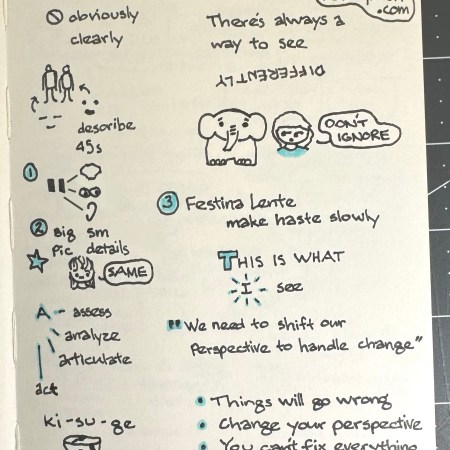 obviously
clearly
describe
45s
1
2 Big sm
Pic details
SAME
A - assess
analyze
articulate
act
ki-su-ge
.com
There's always a
way to see
DIFFERENTLY
DON'T
IGNORE
3 Festina Lente
make haste slowly
THIS IS WHAT
I see
"We need to shift our
Perspective to handle change"
• Things will go wrong
• Change your perspective
• You can't fix everything